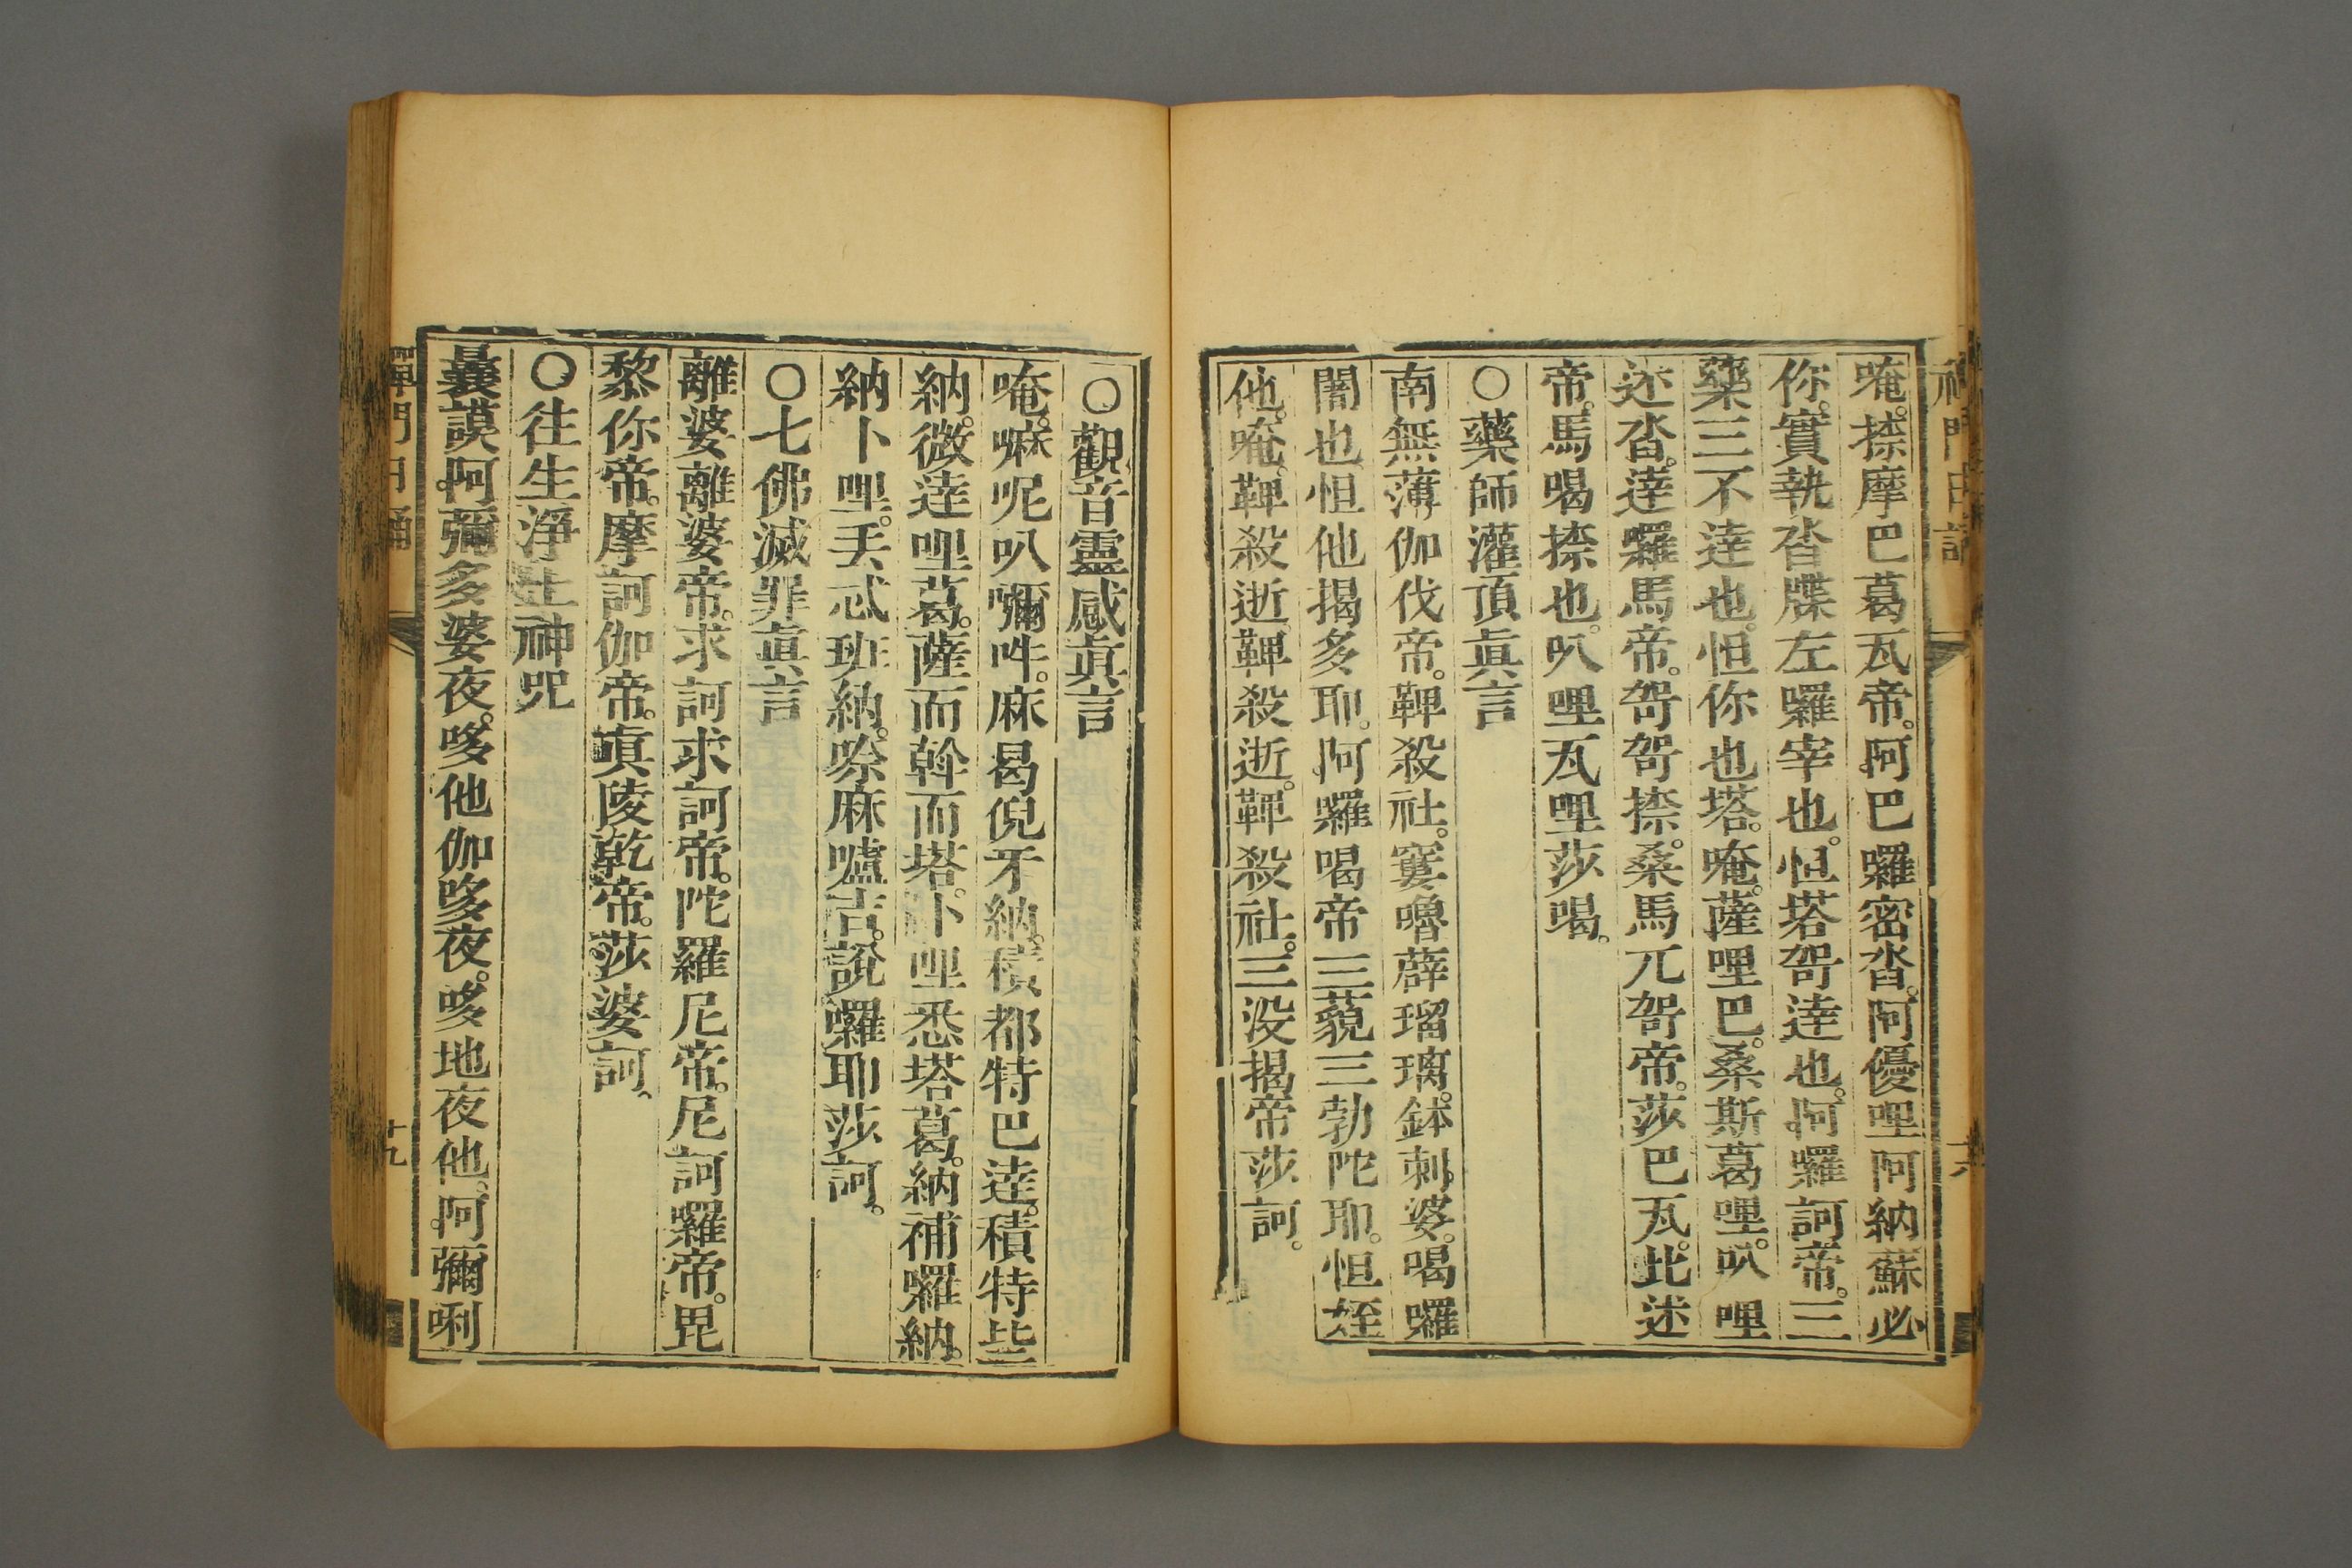 唵。捺摩巴葛瓦帝。阿巴囉密沓。阿優哩阿納蘇必
你。實執沓牒左囉宰也。怛塔哿達也。阿囉訶帝。三
藥三不達也。怛你也塔。唵。薩哩巴。桑斯葛哩。叭哩
述沓。達囉馬帝。哿哿捺。桑馬兀哿帝。莎巴瓦。此述
帝。馬喝捺也。叭哩瓦哩莎喝。
○藥師灌頂真言
南無薄伽伐帝。鞞殺社。窶嚕薜瑠璃。鉢刺婆。喝囉
闍也。怛他揭多耶。阿囉喝帝三藐三勃陀耶。怛姪
他。唵。鞞殺逝。鞞殺逝。鞞殺社。三没揭帝莎訶。
○觀音靈感真言
唵。嘛呢叭彌吽。麻曷倪牙納。積都特巴達。積特些
納。微達哩葛。薩而斡而塔。卜哩悉塔葛。納補囉納。
納卜哩。丟忒班納。喼麻嚧吉。說囉耶莎訶。
○七佛滅罪真言
離婆離婆帝。求訶求訶帝。陀羅尼帝。尼訶羅帝。毘
黎你帝。摩訶伽帝。真陵乾帝。莎婆訶。
○往生淨土神呪
曩謨。阿彌多婆夜。哆他伽哆夜。哆地夜他。阿彌唎
禪門日誦
十九